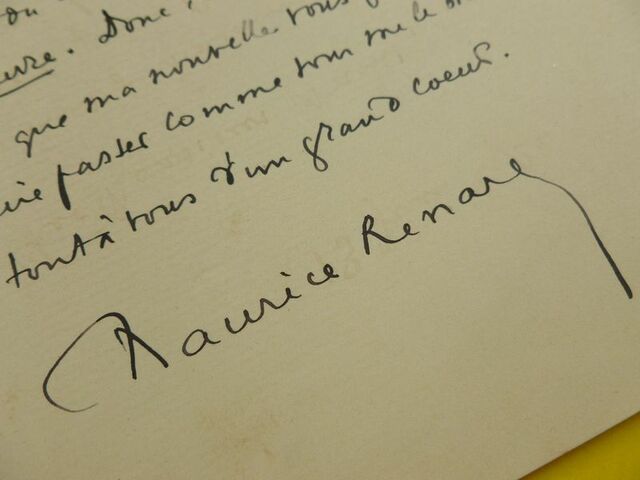 ou
uvre. Donc,
que ma nouvelle vous
passer comme vous me le
tout à vous d'un grand coeur.
Maurice Renard